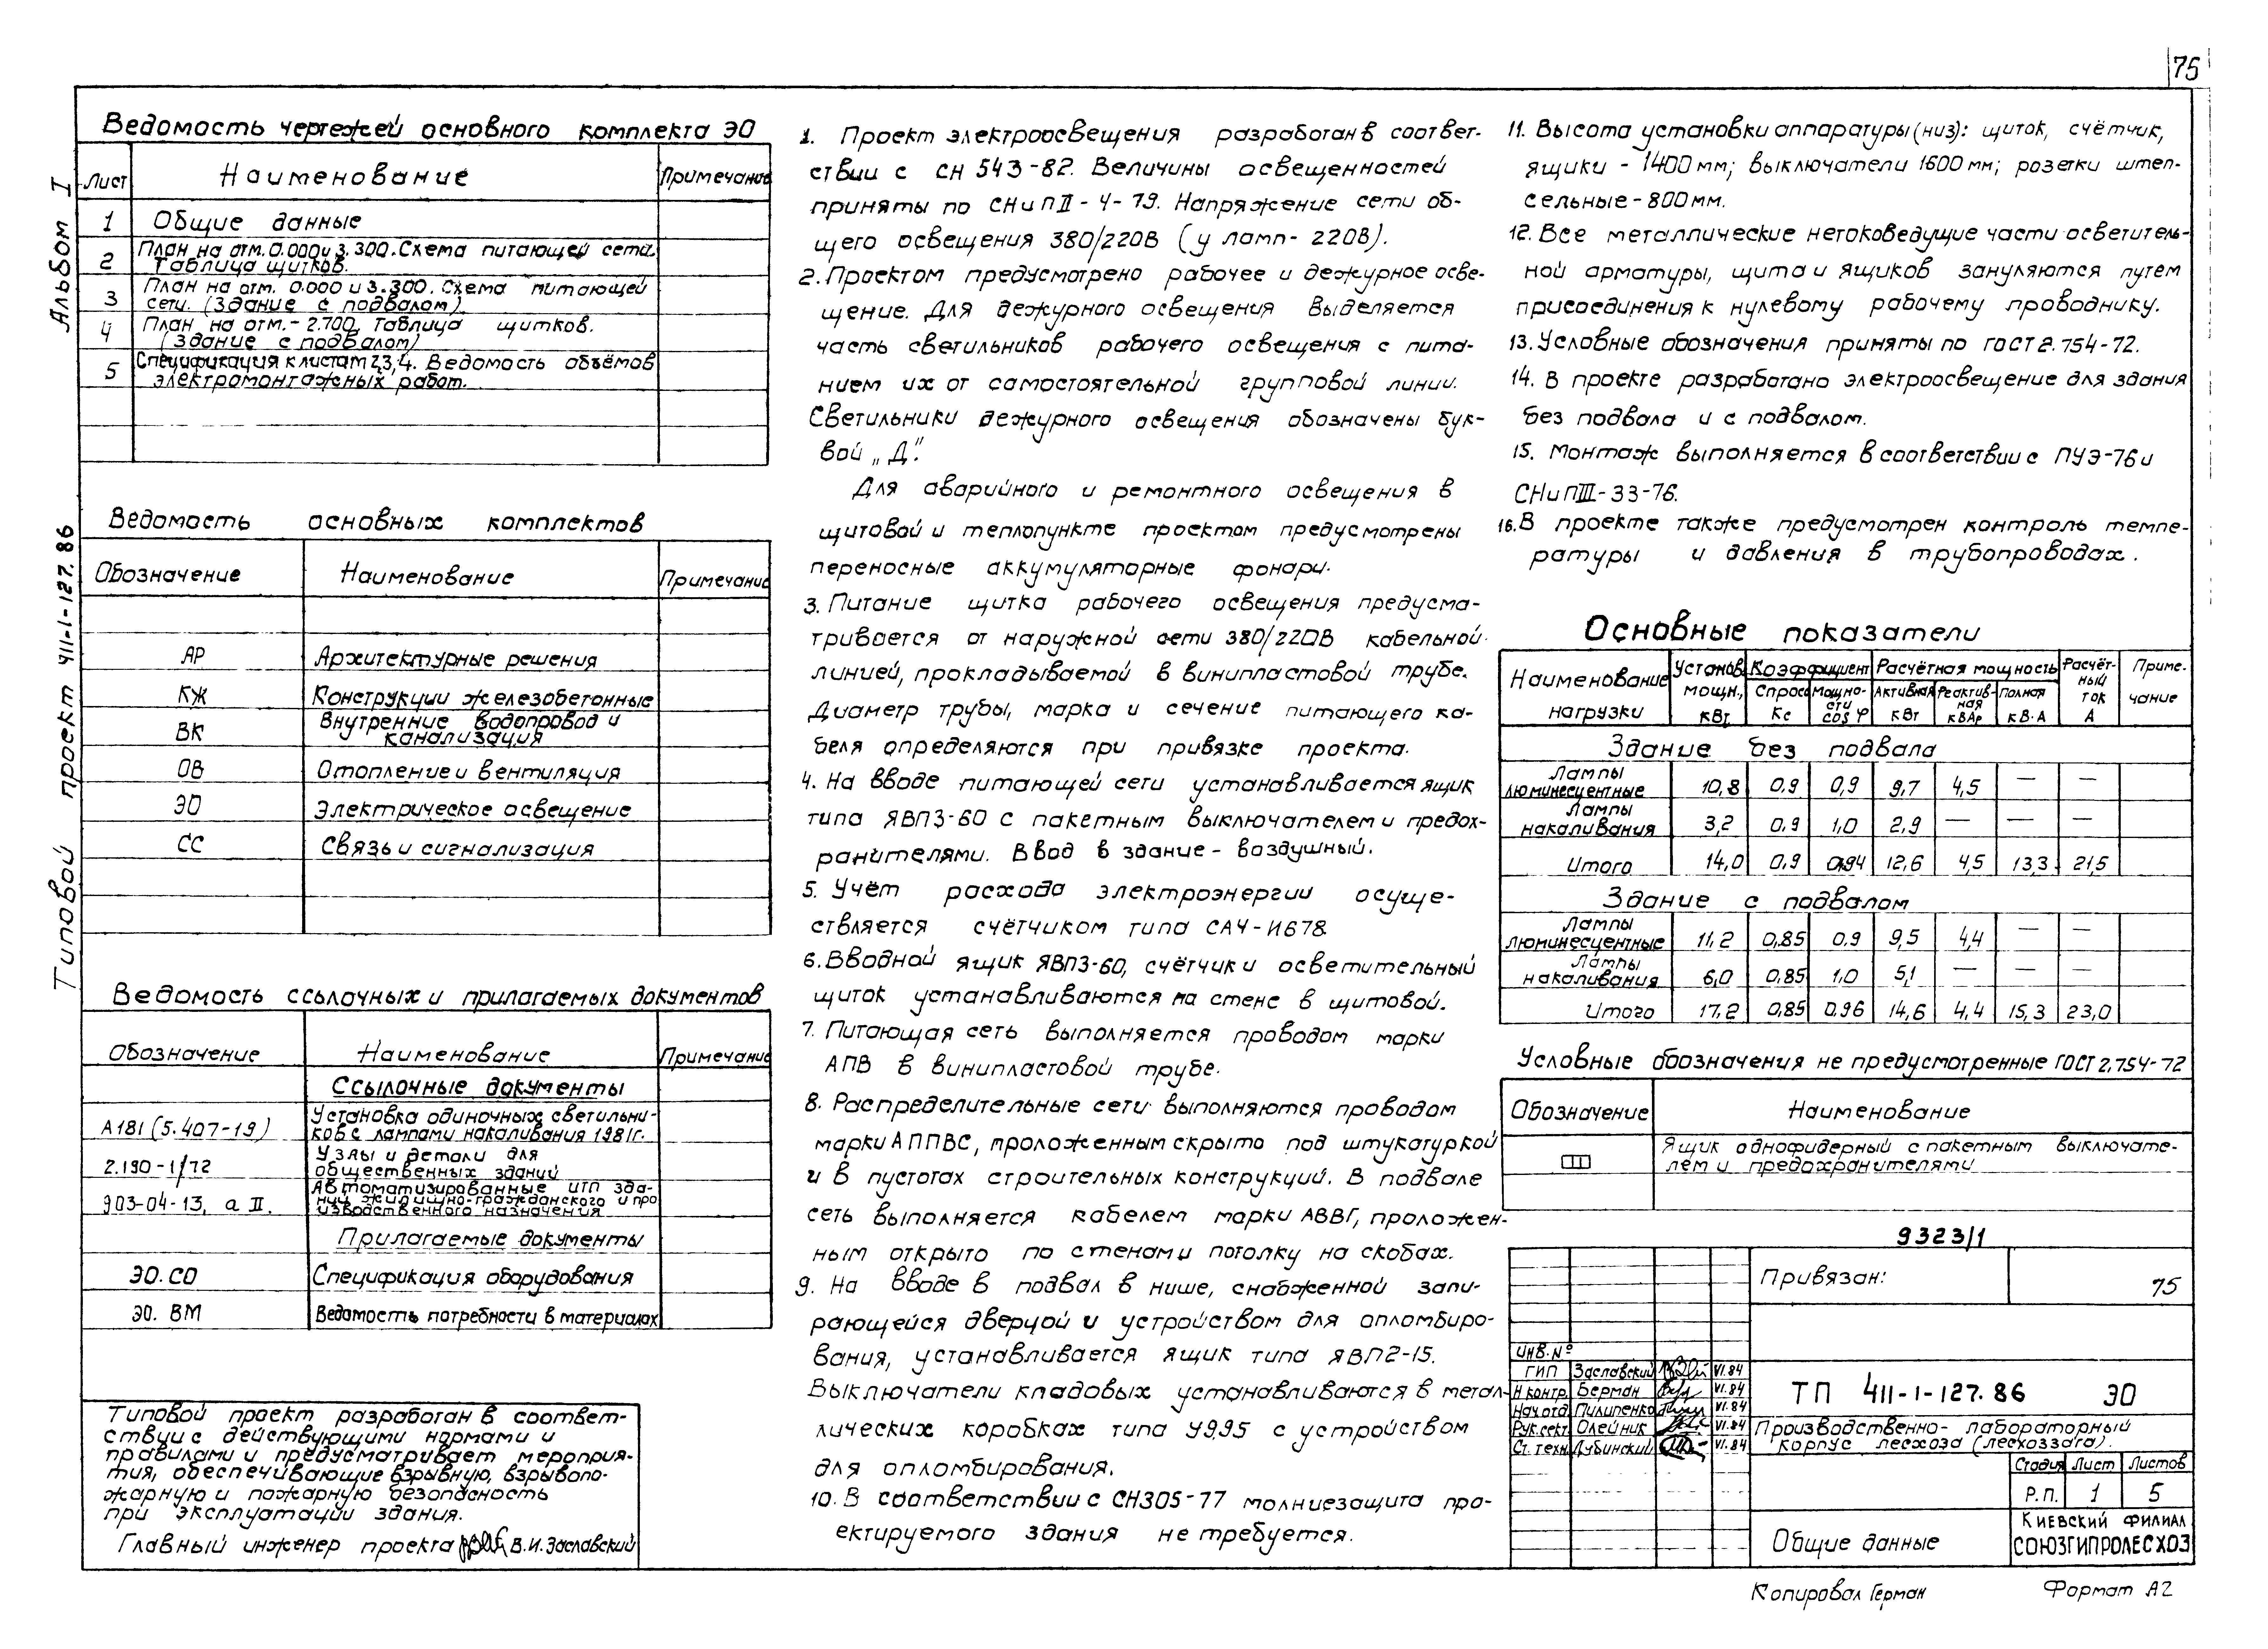 75
Альбом I
Типовой проект 411-1-127.86
Ведомость чертежей основного комплекта ЭО
Лист Наименование Примечание
1 Общие данные
2 План на отм. 0.000 и 3.300. Схема питающей сети.
Таблица щитков.
3 План на отм. 0.000 и 3.300. Схема питающей
сети. (Здание с подвалом)
4 План на отм. - 2.700. Таблица щитков.
(Здание с подвалом)
5 Спецификация к листам 2,3,4. Ведомость объёмов
электромонтажных работ.
Ведомость основных комплектов
Обозначение Наименование Примечание
АР Архитектурные решения
КЖ Конструкции железобетонные
ВК Внутренние водопровод и
канализация
ОВ Отопление и вентиляция
ЭО Электрическое освещение
СС Связь и сигнализация
Ведомость ссылочных и прилагаемых документов
Обозначение Наименование Примечание
Ссылочные документы
А181 (5.407-19) Установка одиночных светильни-
ков с лампами накаливания 1981г.
2.190-1/72 Узлы и детали для
общественных зданий
903-04-13, а II. Автоматизированные ИТП зда-
ний жилищно-гражданского и про
изводственного назначения
Прилагаемые документы
ЭО. СО Спецификация оборудования
ЭО. ВМ Ведомость потребности в материалах
Типовой проект разработан в соответ-
ствии с действующими нормами и
правилами и предусматривает мероприя-
тия, обеспечивающие взрывную, взрывопо-
жарную и пожарную безопасность
при эксплуатации здания.
Главный инженер проекта В.И. Заславский
1. Проект электроосвещения разработан в соответ-
ствии с СН 543-82. Величины освещенностей
приняты по СНиПII-4-79. Напряжение сети об-
щего освещения 380/220В (у ламп- 220В).
2. Проектом предусмотрено рабочее и дежурное осве-
щение. Для дежурного освещения выделяется
часть светильников рабочего освещения с пита-
нием их от самостоятельной групповой линии.
Светильники дежурного освещения обозначены бук-
вой „Д".
Для аварийного и ремонтного освещения в
щитовой и теплопункте проектом предусмотрены
переносные аккумуляторные фонари.
3. Питание щитка рабочего освещения предусма-
тривается от наружной сети 380/220В кабельной
линией, прокладываемой в винипластовой трубе.
Диаметр трубы, марка и сечение питающего ка-
беля определяются при привязке проекта.
4. На вводе питающей сети устанавливается ящик
типа ЯВПЗ-60 с пакетным выключателем и предох-
ранителями. Ввод в здание - воздушный.
5. Учёт расхода электроэнергии осуще-
ствляется счётчиком типа СА4-И678
6. Вводной ящик ЯВПЗ-60, счётчик и осветительный
щиток устанавливаются на стене в щитовой.
7. Питающая сеть выполняется проводом марки
АПВ в винипластовой трубе.
8. Распределительные сети выполняются проводом
марки АППВС, проложенным скрыто под штукатуркой
и в пустотах строительных конструкций. В подвале
сеть выполняется кабелем марки АВВГ, проложен-
ным открыто по стенам и потолку на скобах.
9. На вводе в подвал в нише, снабженной запи-
рающейся дверцой и устройством для опломбиро-
вания, устанавливается ящик типа ЯВП2-15.
Выключатели кладовых устанавливаются в метал-
лических коробках типа У995 с устройством
для опломбирования.
10. В соответствии с СН305-77 молниезащита про-
ектируемого здания не требуется.
11. Высота установки аппаратуры (низ): щиток, счётчик,
ящики - 1400 мм; выключатели 1600 мм; розетки штеп-
сельные - 800 мм.
12. Все металлические нетоковедущие части осветитель-
ной арматуры, щита и ящиков зануляются путем
присоединения к нулевому рабочему проводнику.
13. Условные обозначения приняты по ГОСТ 2.754-72.
14. В проекте разработано электроосвещение для здания
без подвала и с подвалом.
15. Монтаж выполняется в соответствии с ПУЭ-76 и
СНиПIII-33-76.
16. В проекте также предусмотрен контроль темпе-
ратуры и давления в трубопроводах.
Основные показатели
Наименование нагрузки Установ. мощн., кВт Коэффициент Расчётная мощность Расчёт- ный ток А Приме- чание
Спроса Кс Мощно- сти cos φ Активная кВт Реактив- ная кВАр Полная кВ·А
Здание без подвала
Лампы люминесцентные 10,8 0,9 0,9 9,7 4,5 — —
Лампы накаливания 3,2 0,9 1,0 2,9 — — —
Итого 14,0 0,9 0,94 12,6 4,5 13,3 21,5
Здание с подвалом
Лампы люминесцентные 11,2 0,85 0,9 9,5 4,4 — —
Лампы накаливания 6,0 0,85 1,0 5,1 — — —
Итого 17,2 0,85 0,96 14,6 4,4 15,3 23,0
Условные обозначения не предусмотренные ГОСТ 2.754-72
Обозначение Наименование
Ящик однофидерный с пакетным выключате-
лем и предохранителями
9323/1
Привязан:
75
Инв. №
ГИП Заславский VI.84
Н.контр. Берман VI.84
Нач.отд. Пилипенко VI.84
Рук.сект. Олейник VI.84
Ст. техн. Дубинский VI.84
ТП 411-1-127.86 ЭО
Производственно-лабораторный
корпус лесхоза (лесхоззага).
Стадия Лист Листов
Р.П. 1 5
Общие данные
Киевский филиал
СОЮЗГИПРОЛЕСХОЗ
Копировал Герман Формат А2